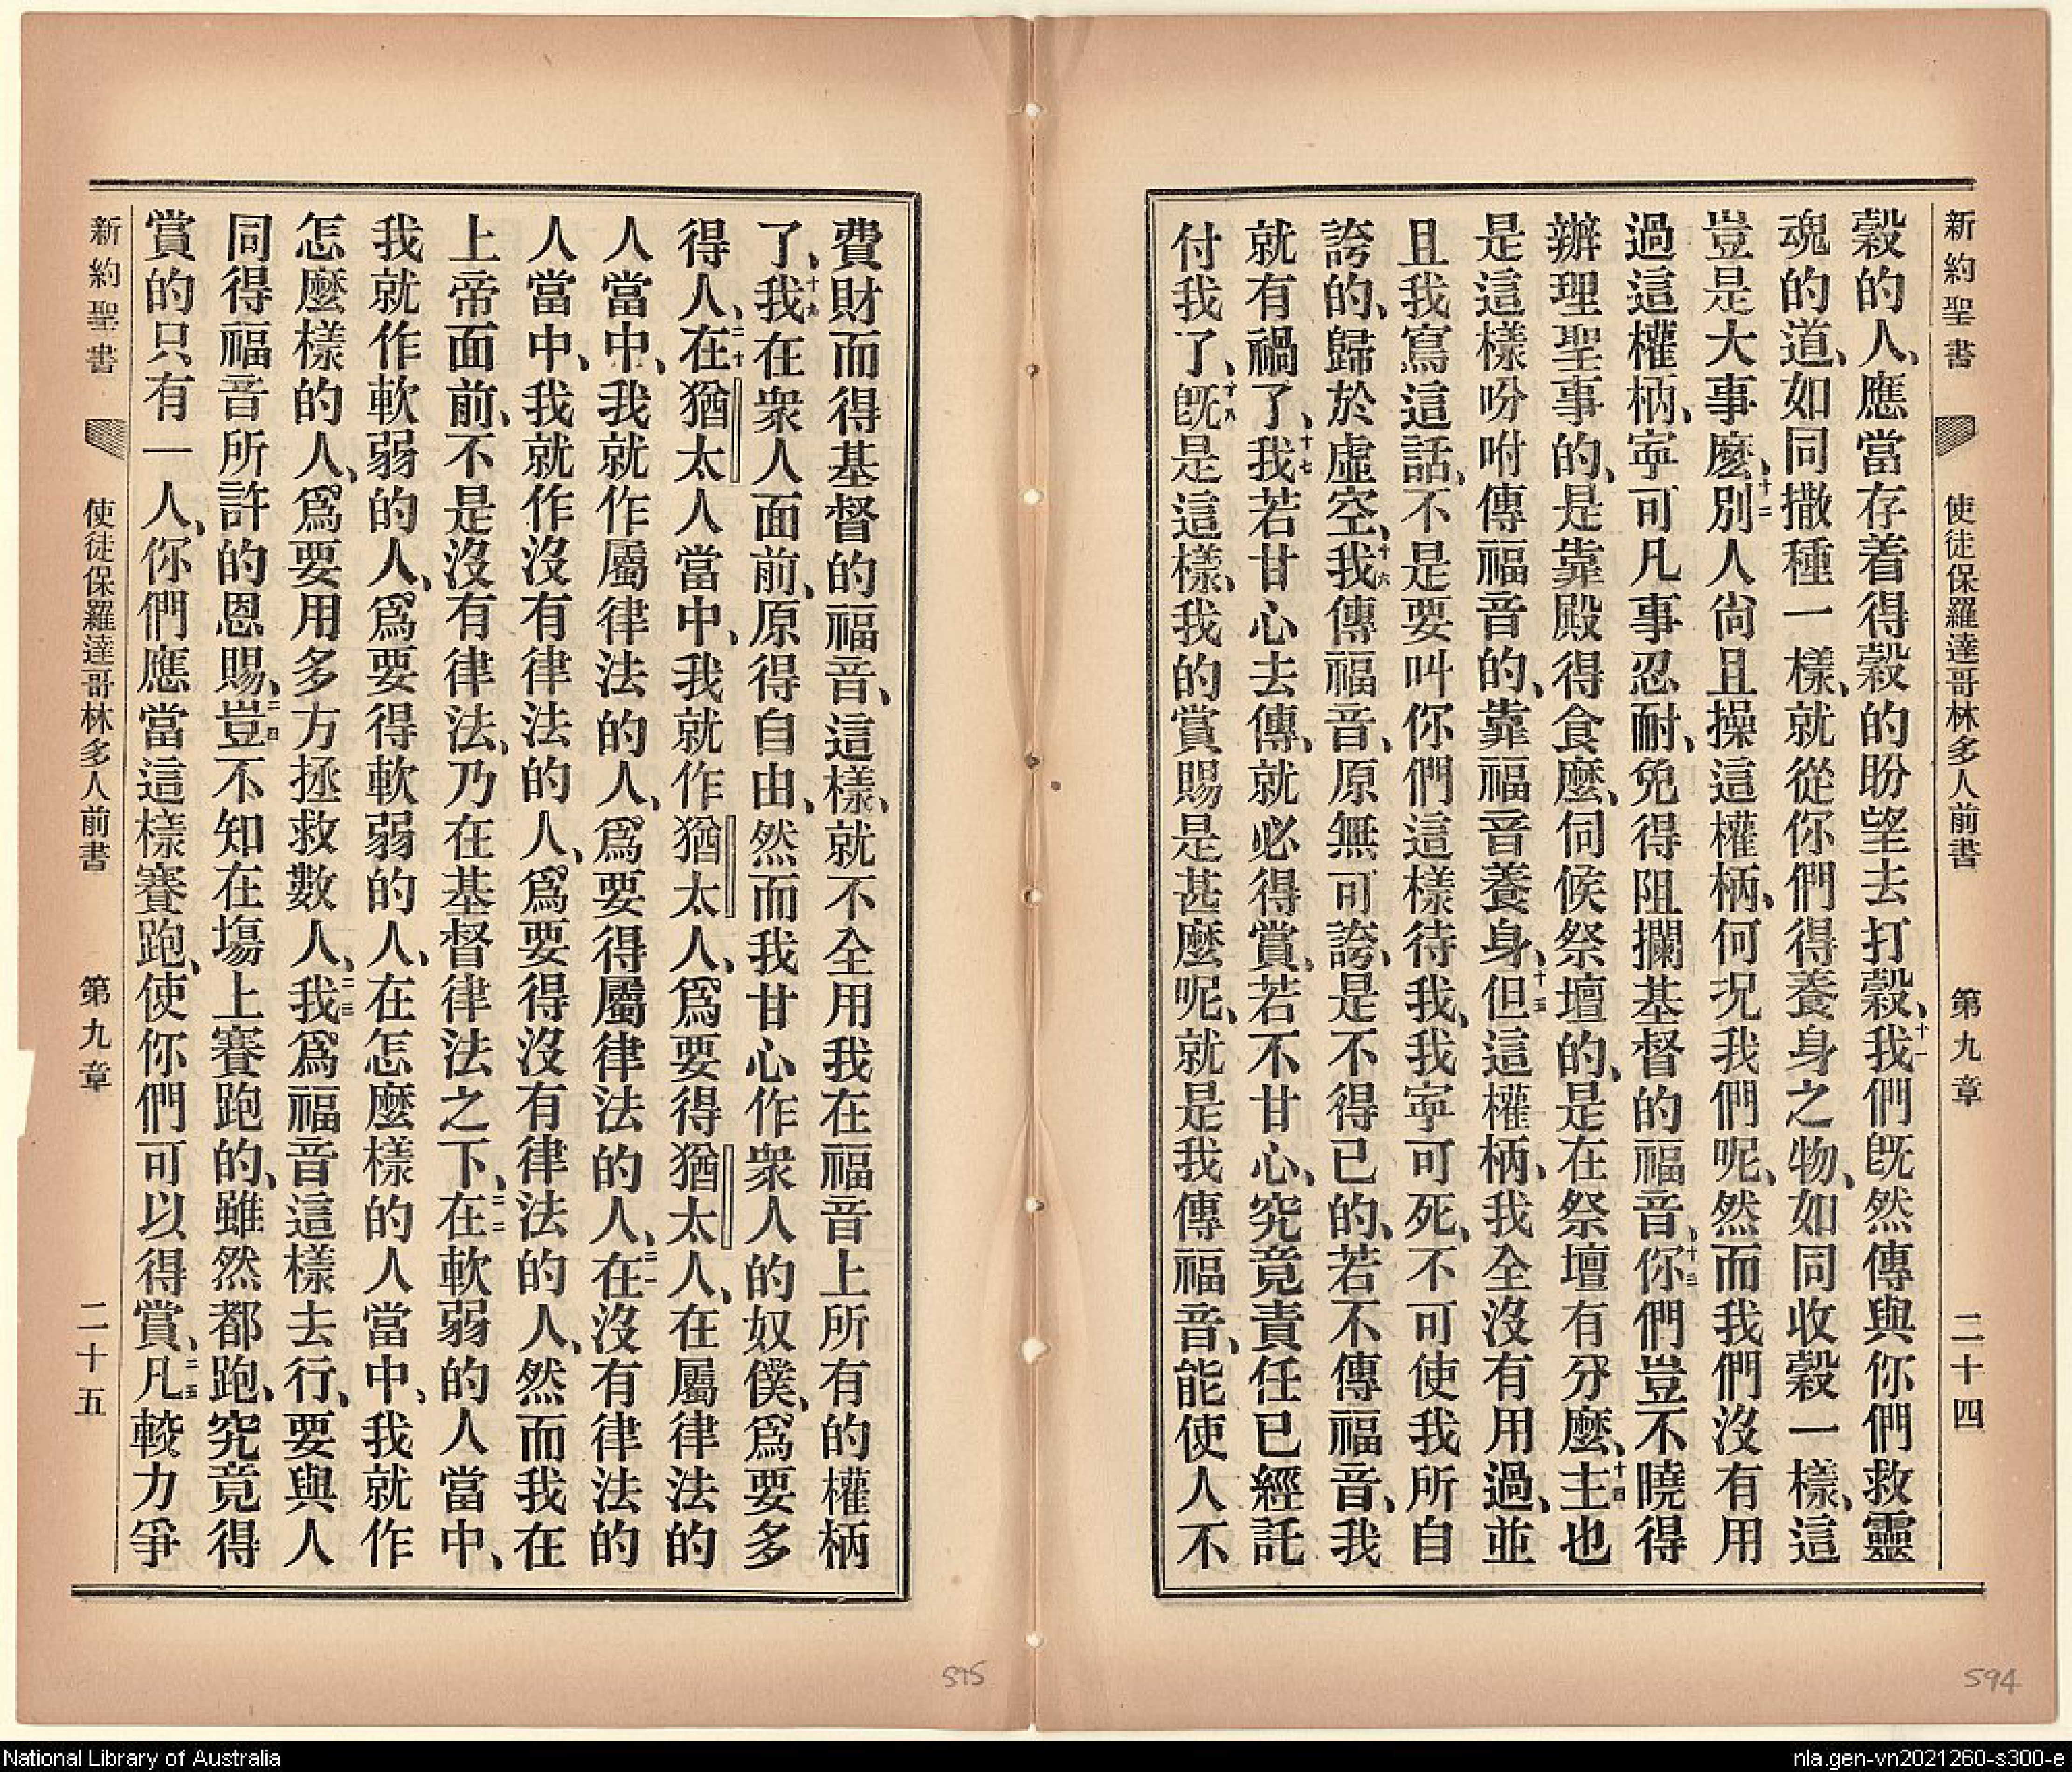 新約聖書 使徒保羅達哥林多人前書 第九章 二十四
穀的人、應當存着得穀的盼望去打穀、十一我們旣然傳與你們救靈
魂的道、如同撒種一樣、就從你們得養身之物、如同收穀一樣、這
豈是大事麼、十二別人尙且操這權柄、何况我們呢、然而我們沒有用
過這權柄、寧可凡事忍耐、免得阻攔基督的福音。十三你們豈不曉得
辦理聖事的、是靠殿得食麼、伺候祭壇的、是在祭壇有分麼、十四主也
是這樣吩咐傳福音的、靠福音養身、十五但這權柄、我全沒有用過、並
且我寫這話、不是要叫你們這樣待我、我寧可死、不可使我所自
誇的、歸於虛空、十六我傳福音、原無可誇、是不得已的、若不傳福音、我
就有禍了、十七我若甘心去傳、就必得賞、若不甘心、究竟責任已經託
付我了、十八旣是這樣、我的賞賜是甚麼呢、就是我傳福音、能使人不
費財而得基督的福音、這樣、就不全用我在福音上所有的權柄
了、十九我在衆人面前、原得自由、然而我甘心作衆人的奴僕、爲要多
得人、二十在猶太人當中、我就作猶太人、爲要得猶太人、在屬律法的
人當中、我就作屬律法的人、爲要得屬律法的人、二一在沒有律法的
人當中、我就作沒有律法的人、爲要得沒有律法的人、然而我在
上帝面前、不是沒有律法、乃在基督律法之下、二二在軟弱的人當中、
我就作軟弱的人、爲要得軟弱的人、在怎麼樣的人當中、我就作
怎麼樣的人、爲要用多方拯救數人、二三我爲福音這樣去行、要與人
同得福音所許的恩賜、二四豈不知在塲上賽跑的、雖然都跑、究竟得
賞的只有一人、你們應當這樣賽跑、使你們可以得賞、二五凡較力爭
新約聖書 使徒保羅達哥林多人前書 第九章 二十五
595
594
National Library of Australia
nla.gen-vn2021260-s300-e